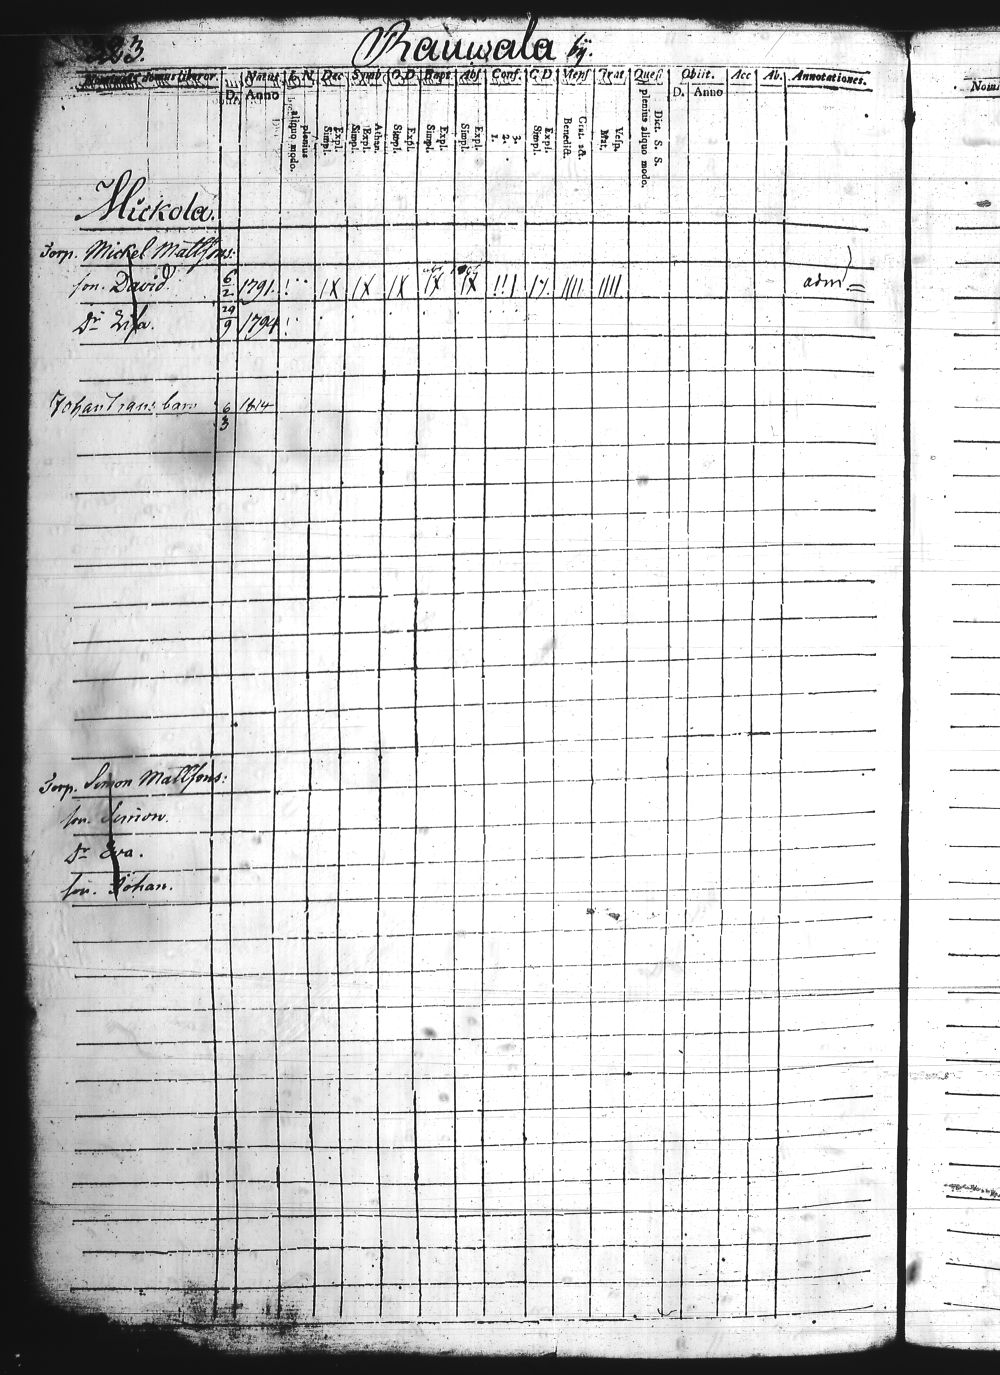 323. Rauwala bÿ.
Nomina domus liberor. Natus L. N. Dec Symb O. D Bapt Abs Conf. C D Mens Trat Quest Obiit. Acc Ab. Annotationes. Nomi
D. Anno D. Anno
aliquo modo. plenius Simpl. Expl. Simpl. Expl. Athan. Simpl. Expl. Simpl. Expl. Simpl. Expl. 1. 2. 3. Simpl. Expl. Benedict. Grat. act. Mat. Vesp. plenius aliquo modo. Dict. S. S.
Mickola.
Torp. Mickel Mattsons:
son. David. 6/2 1791. adm
Dr 29/9 1794
Johan 6/3 1814
Torp. Simon Mattsons:
son. Simon.
Dr Eva.
son. Johan.